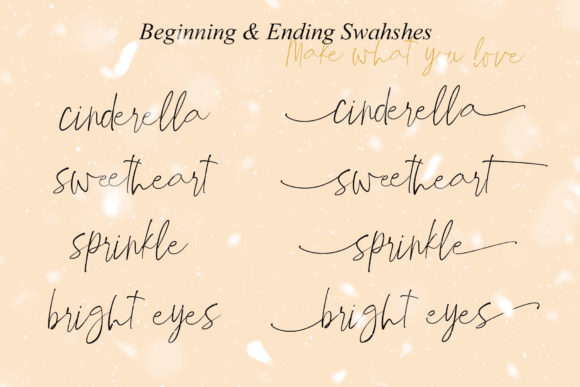 Beginning & Ending Swahshes
Make what you love
cinderella cinderella
sweetheart sweetheart
sprinkle sprinkle
bright eyes bright eyes